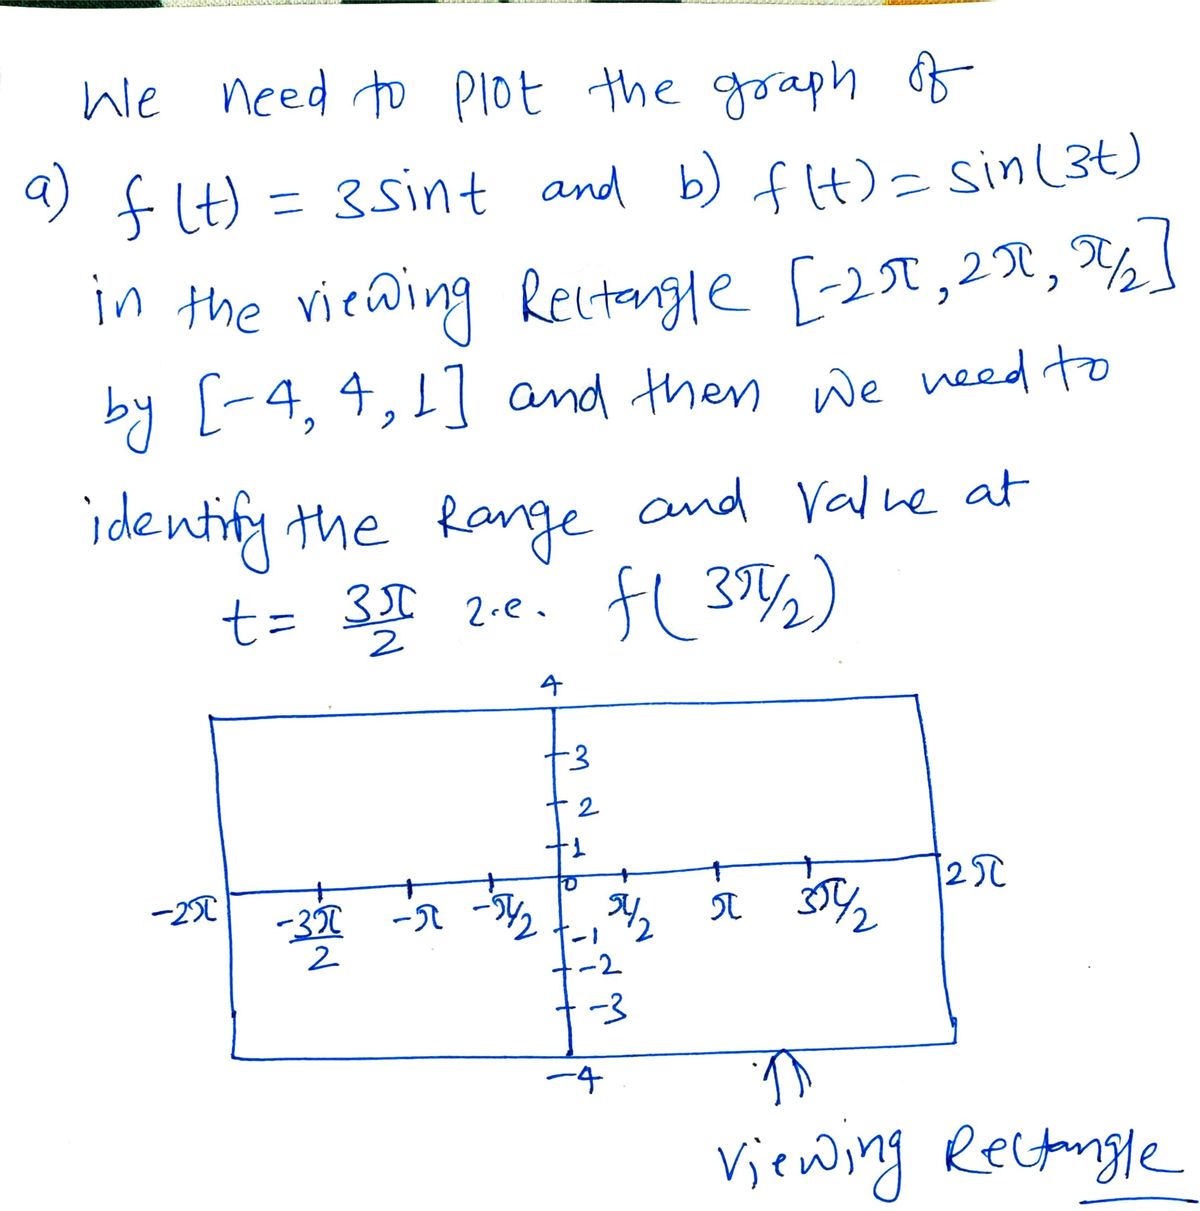 We need to plot the graph of
a) f(t) = 3sint and b) f(t) = sin(3t)
in the viewing Rectangle [-2π, 2π, π/2]
by [-4, 4, 1] and then we need to
identify the Range and value at
t = 3π/2 i.e. f(3π/2)
4
3
2
1
-2π -3π/2 -π -π/2 0 π/2 π 3π/2 2π
-1
-2
-3
-4
viewing Rectangle